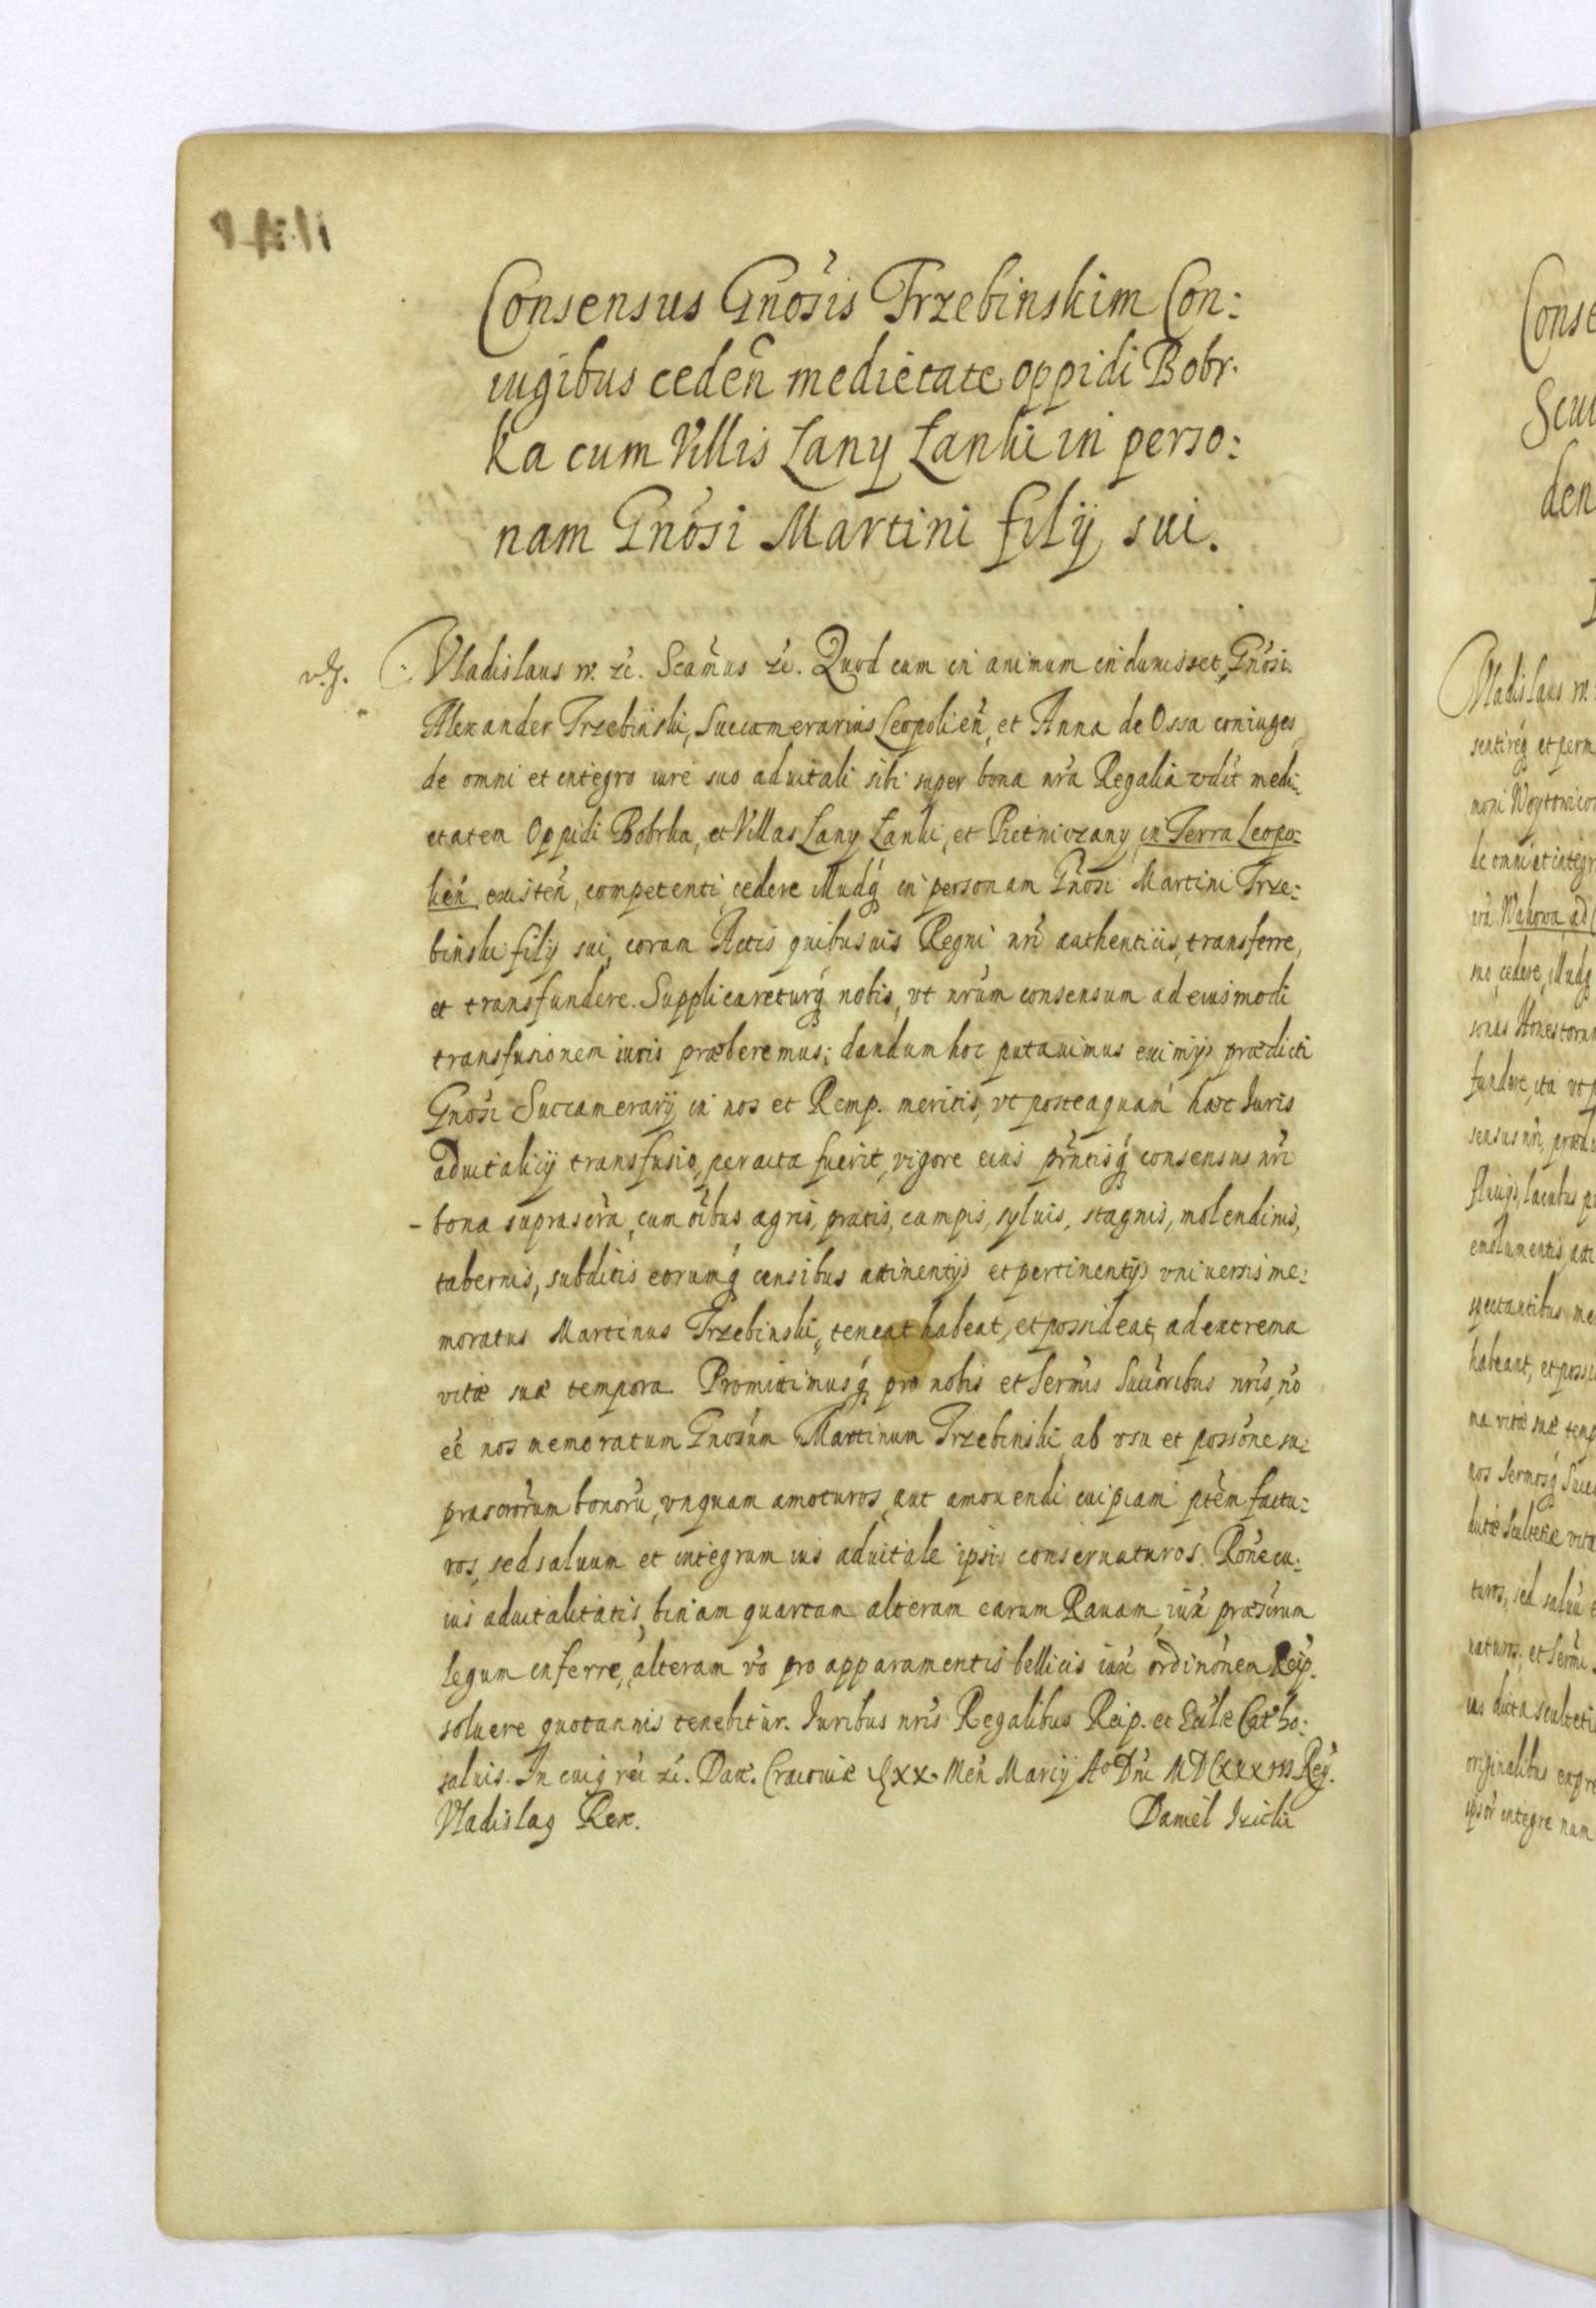 Consensus Gnosis Trzebinskim Con:
iugibus ceden medietate oppidi Bobr.
ka cum Villis Lany Lanki in perso:
nam Gnosi Martini filij sui.
Vladislaus IV. zc. Scamus zc. Quod cum in animum induxisset Gnosi
Alexander Trzebinski, Succamerarius Leopolien, et Anna de Ossa coniuges
de omni et integro iure suo aduitali sibi super bona nra Regalia vdlt medi:
etatem Oppidi Bobrka, et Villas Lany Lanki, et Pietniczany in Terra Leopo:
lien existen, competenti cedere illudq in personam Gnosi Martini Trze:
binski filij sui, coram Actis quibusuis Regni nri authenticis, transferre,
et transfundere. Supplicareturq nobis, vt nrum consensum ad eiusmodi
transfusionem iuris præberemus; dandum hoc putauimus eximijs prædicti
Gnosi Succamerarij in nos et Remp. meritis, vt posteaquam hæc Iuris
aduitalicij transfusio, peracta fuerit, vigore eius prntisq consensus nri
bona suprascra, cum oibus agris, pratis, campis, syluis, stagnis, molendinis,
tabernis, subditis eorumq censibus attinentijs et pertinentijs vniuersis me:
moratus Martinus Trzebinski, teneat habeat, et possideat, ad extrema
vitæ suæ tempora. Promittimusq pro nobis et Sermis Succoribus nris, no
ee nos memoratum Gnosum Martinum Trzebinski ab vsu et possone su:
prascrorum bonoru, vnquam amoturos, aut amouendi cuipiam ptem factu:
ros, sed saluum et integrum ius aduitale ipsi conseruaturos. Rone cu:
ius aduitalitatis, binam quartam alteram earum Rauam iux præscrum
legum inferre, alteram vo pro apparamentis bellicis iux ordinonem Reip.
soluere quotannis tenebitur. Iuribus nris Regalibus Reip. et Eccle Catho:
saluis. In cuiq rei zc. Dat. Cracouiæ XX. Men Marcij Ao Dni Reg.
Vladislaq Rex.
Daniel